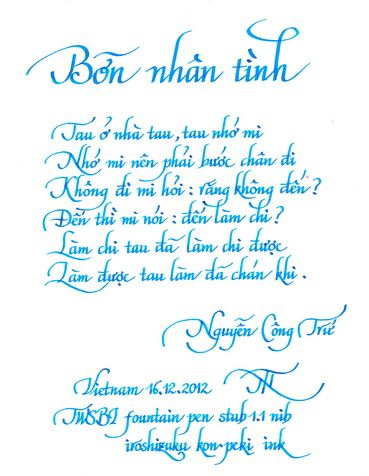 Bỡn nhân tình
Tau ở nhà tau, tau nhớ mi
Nhớ mi nên phải bước chân đi
Không đi mi hỏi : rằng không đến ?
Đến thì mi nói : đến làm chi ?
Làm chi tau đã làm chi được
Làm được tau làm đã chán khi .
Nguyễn Công Trứ
Vietnam 16.12.2012 TTT
TWSBI fountain pen stub 1.1 nib
iroshizuku kon-peki ink